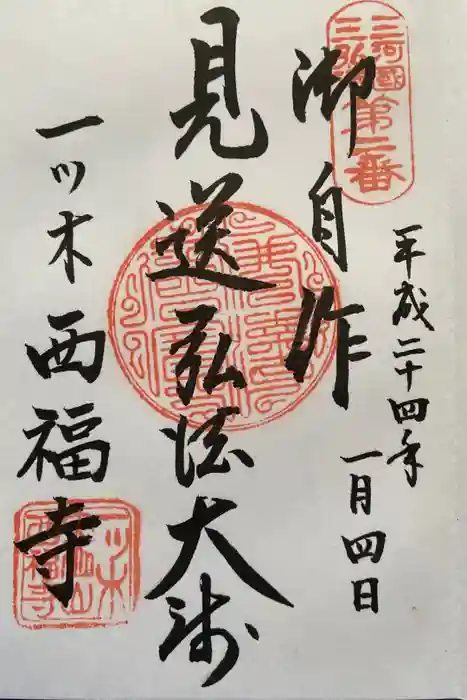 三河國
三弘法
第二番
平成二十四年
一月四日
御自作
見送弘法大師
一ツ木西福寺